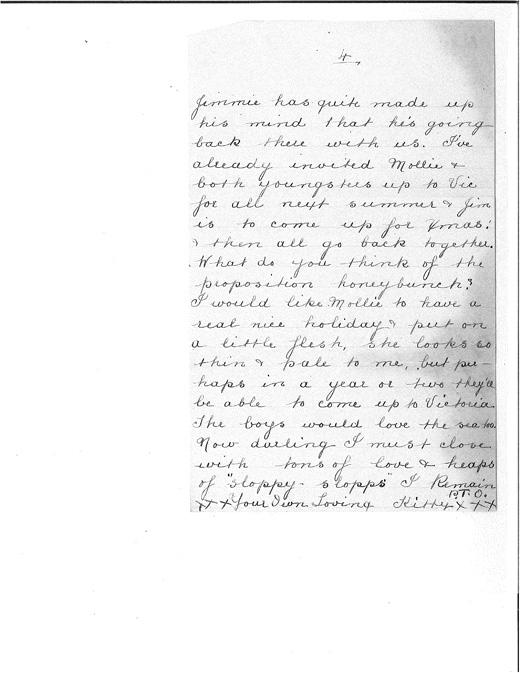 4.
Jimmie has quite made up
his mind that he's going
back there with us. I've
already invited Mollie &
both youngsters up to Vic
for all next summer & Jim
is to come up for Xmas!
& then all go back together.
What do you think of the
proposition honeybunch?
I would like Mollie to have a
real nice holiday & put on
a little flesh, she looks so
thin & pale to me, but per-
haps in a year or two they'd
be able to come up to Victoria
The boys would love the sea too.
Now darling I must close
with tons of love & heaps
of "Sloppy-slopps" I Remain
P.T.O.
X X Your Own Loving Kitty X X X